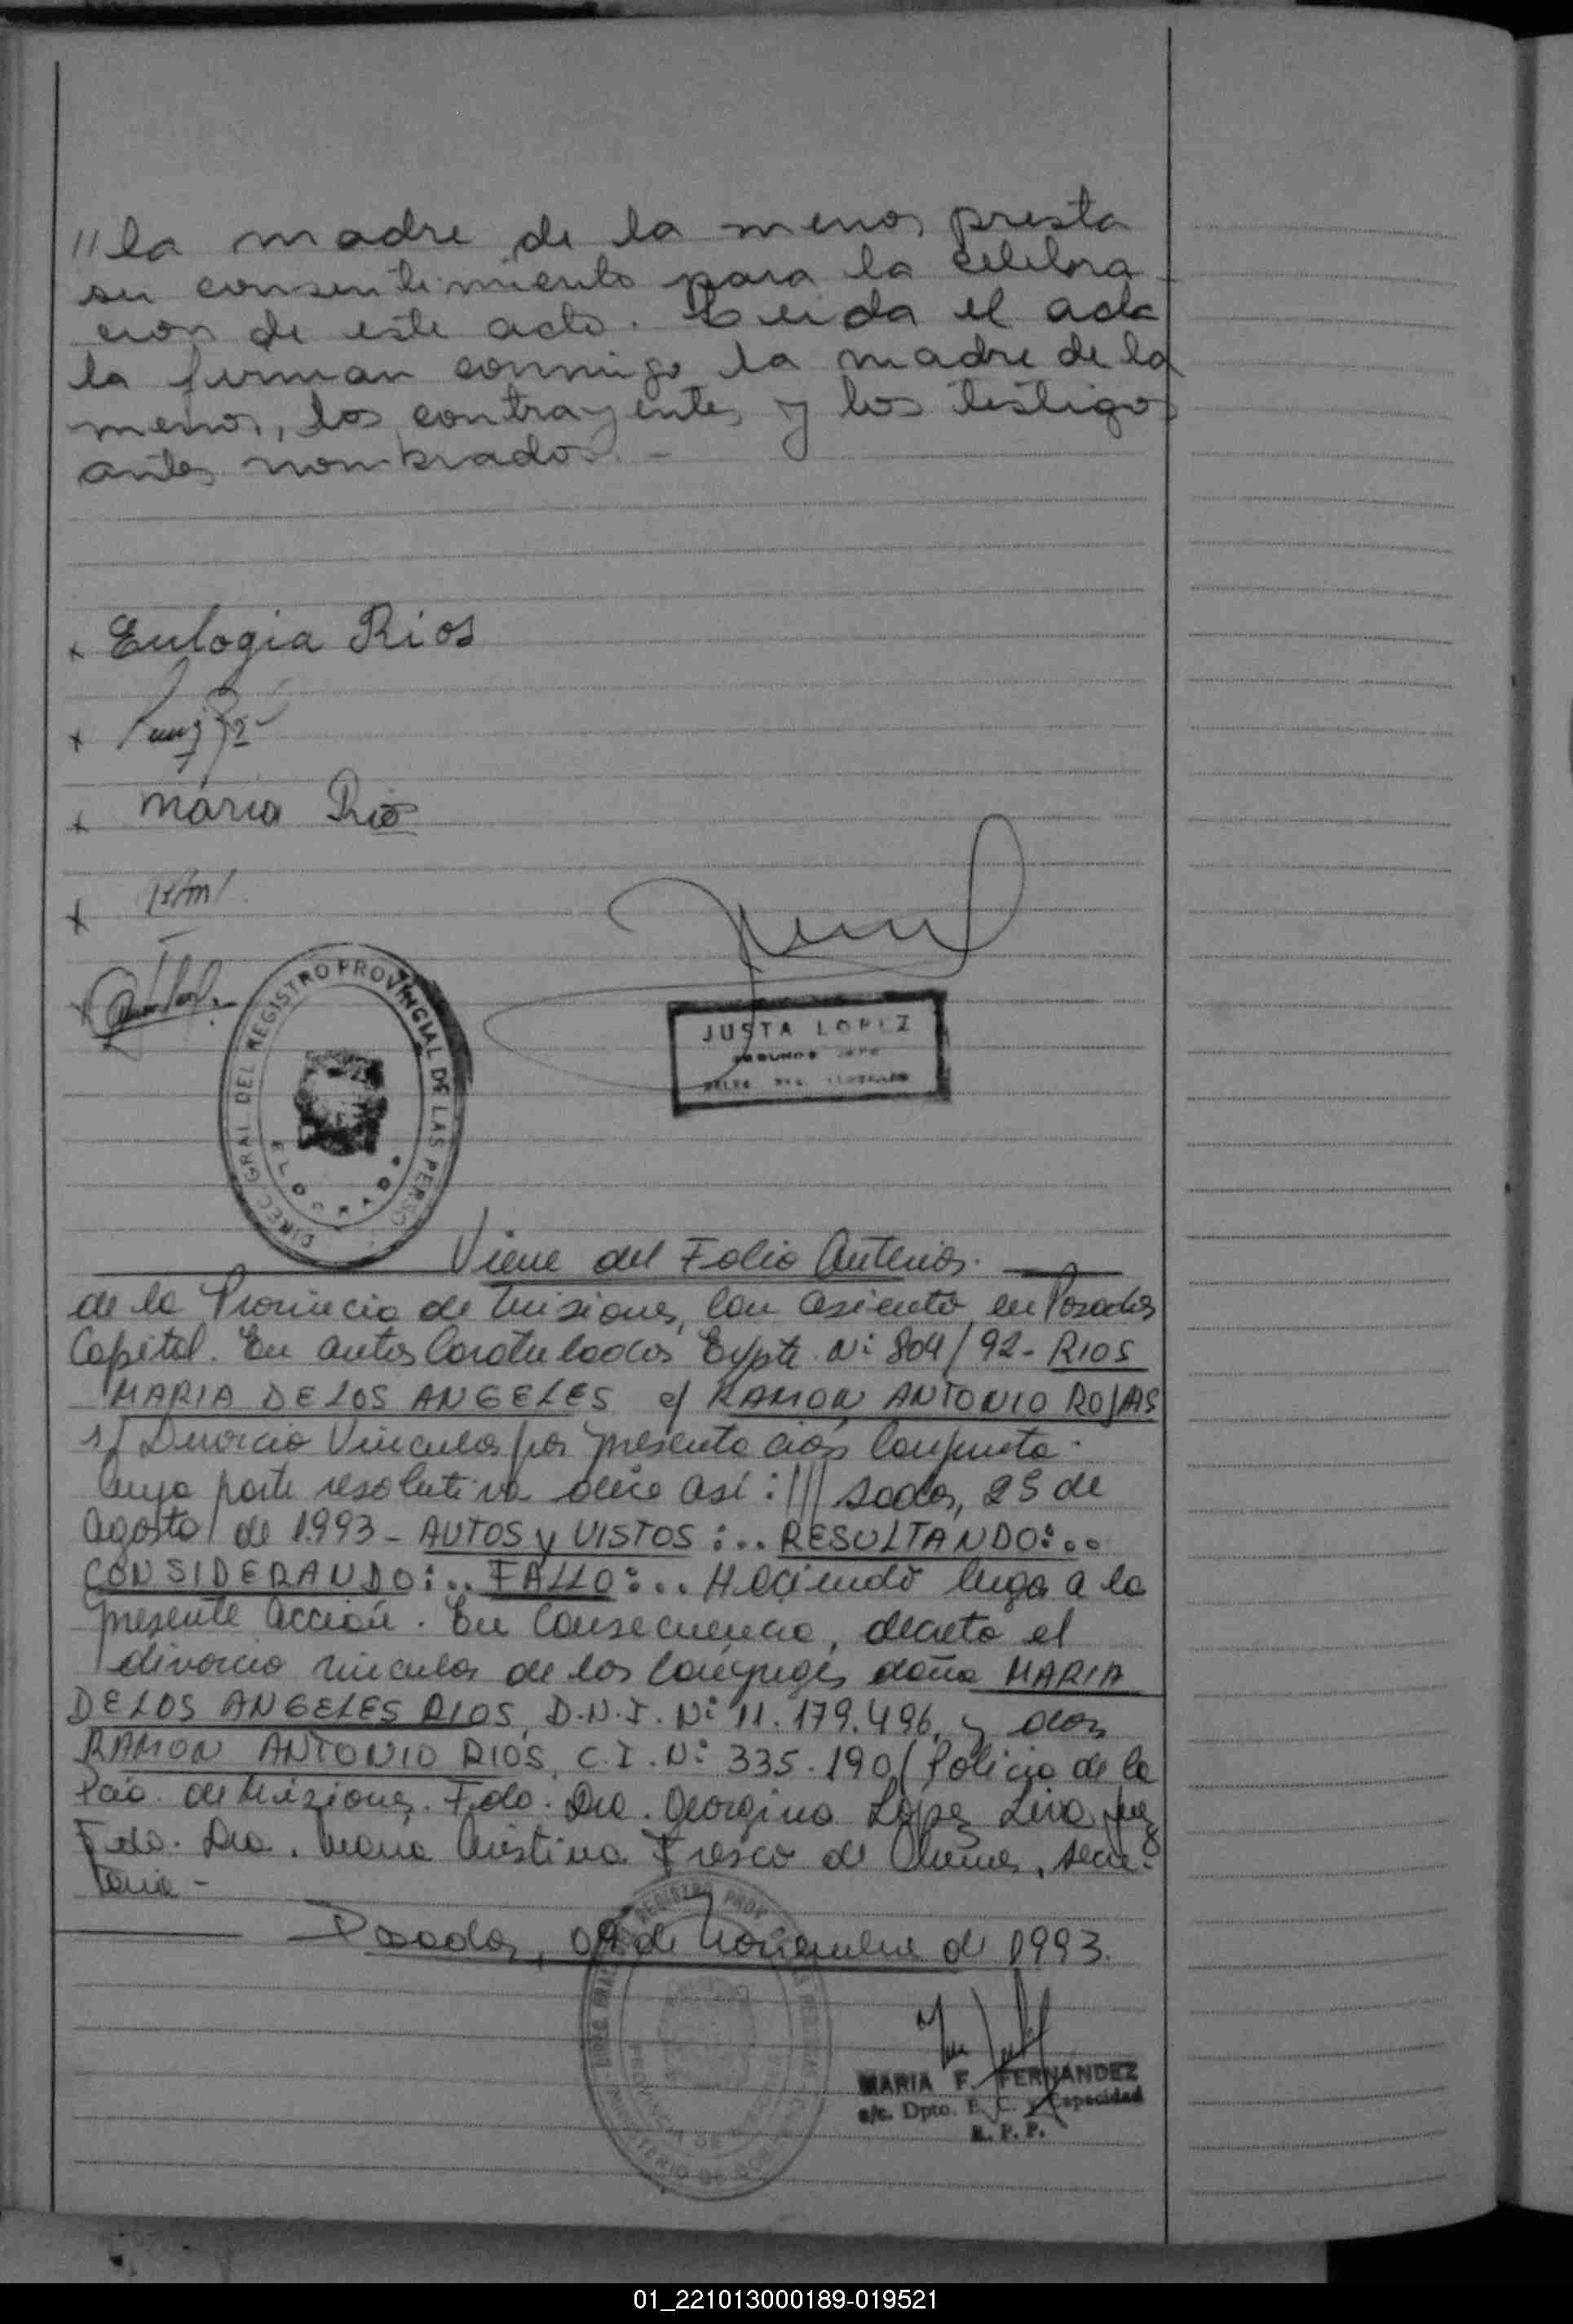 "la madre de la menor presta
su consentimiento para la celebra
cion de este acto. Leida el acta
la firman conmigo la madre de la
menor, los contrayentes y los testigos
antes nombrados. -
x Eulogia Rios
x
x maria Rio
x
x
DIREC. GRAL. DEL REGISTRO PROVINCIAL DE LAS PERSO
ELDORADO
JUSTA LOPEZ
Viene del Folio Anterior.
de la Provincia de Misiones, con asiento en Posadas
Capital. En autos Caratulados Expte. Nº 804/92 - RIOS
MARIA DE LOS ANGELES c/ RAMON ANTONIO ROJAS
s/ Divorcio Vincular por presentacion Conjunta.
Cuya parte resolutiva dice así: /// sadas, 25 de
Agosto de 1.993 - AUTOS y VISTOS:.. RESULTANDO:..
CONSIDERANDO:.. FALLO:.. Haciendo lugar a la
presente acción. En Consecuencia, decreto el
divorcio vincular de los Conyuges doña MARIA
DE LOS ANGELES RIOS, D.N.I. Nº 11.179.496, y don
RAMON ANTONIO RIOS, C.I. Nº 335.190 (Policia de la
Pcia. de Misiones. Fdo. Dra. Georgina Lopez Liva, juez
Fdo. Dra. Maria Cristina Fresco de secre-
taria -
Posadas, 09 de Noviembre de 1993.
MARIA F. FERNANDEZ
a/c. Dpto. E. C. y Capacidad
R. P. P.
01_221013000189-019521